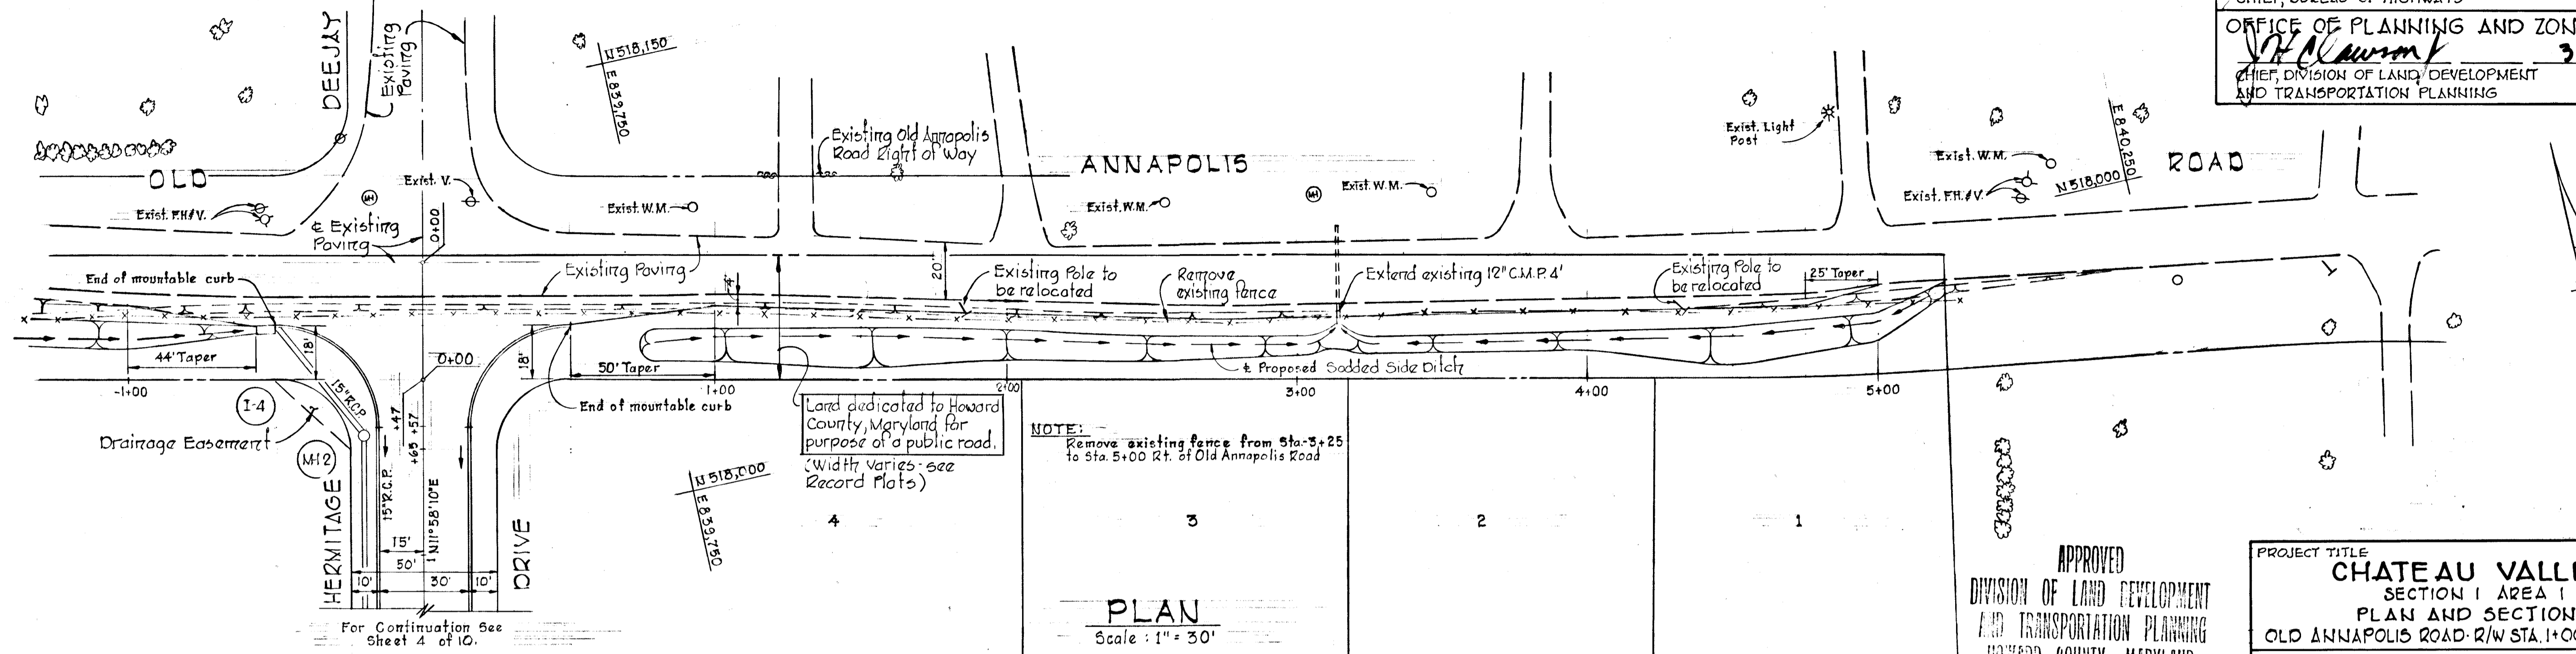 OFFICE OF PLANNING AND ZON
3
CHIEF, DIVISION OF LAND DEVELOPMENT
AND TRANSPORTATION PLANNING
DEEJAY
Existing
Paving
N 518,150
E 839,750
Existing Old Annapolis
Road Right of Way
OLD
ANNAPOLIS
ROAD
Exist. Light
Post
Exist. W.M.
E 840,250
N 518,000
Exist. F.H.&V.
Exist. V.
MH
Exist. F.H.&V.
Exist. W.M.
Exist. W.M.
MH
Exist. W.M.
℄ Existing
Paving
0+00
End of mountable curb
Existing Paving
4'
20'
Existing Pole to
be relocated
Remove
existing fence
Extend existing 12" C.M.P. 4'
Existing Pole to
be relocated
25' Taper
44' Taper
18'
0+00
18'
50' Taper
℄ Proposed Sodded Side Ditch
-1+00
1+00
2+00
3+00
4+00
5+00
I-4
15" R.C.P.
Drainage Easement
M-12
+47
+65 +57
End of mountable curb
Land dedicated to Howard
County, Maryland for
purpose of a public road.
(Width varies - see
Record Plats)
NOTE:
Remove existing fence from Sta.-3+25
to Sta. 5+00 Rt. of Old Annapolis Road
HERMITAGE
15" R.C.P.
N11°58'10"E
DRIVE
N 518,000
E 839,750
4
3
2
1
15'
50'
10'
30'
10'
For Continuation See
Sheet 4 of 10.
PLAN
Scale : 1" = 30'
APPROVED
DIVISION OF LAND DEVELOPMENT
AND TRANSPORTATION PLANNING
HOWARD COUNTY, MARYLAND
PROJECT TITLE
CHATEAU VALL
SECTION 1 AREA 1
PLAN AND SECTION
OLD ANNAPOLIS ROAD-R/W STA. 1+00